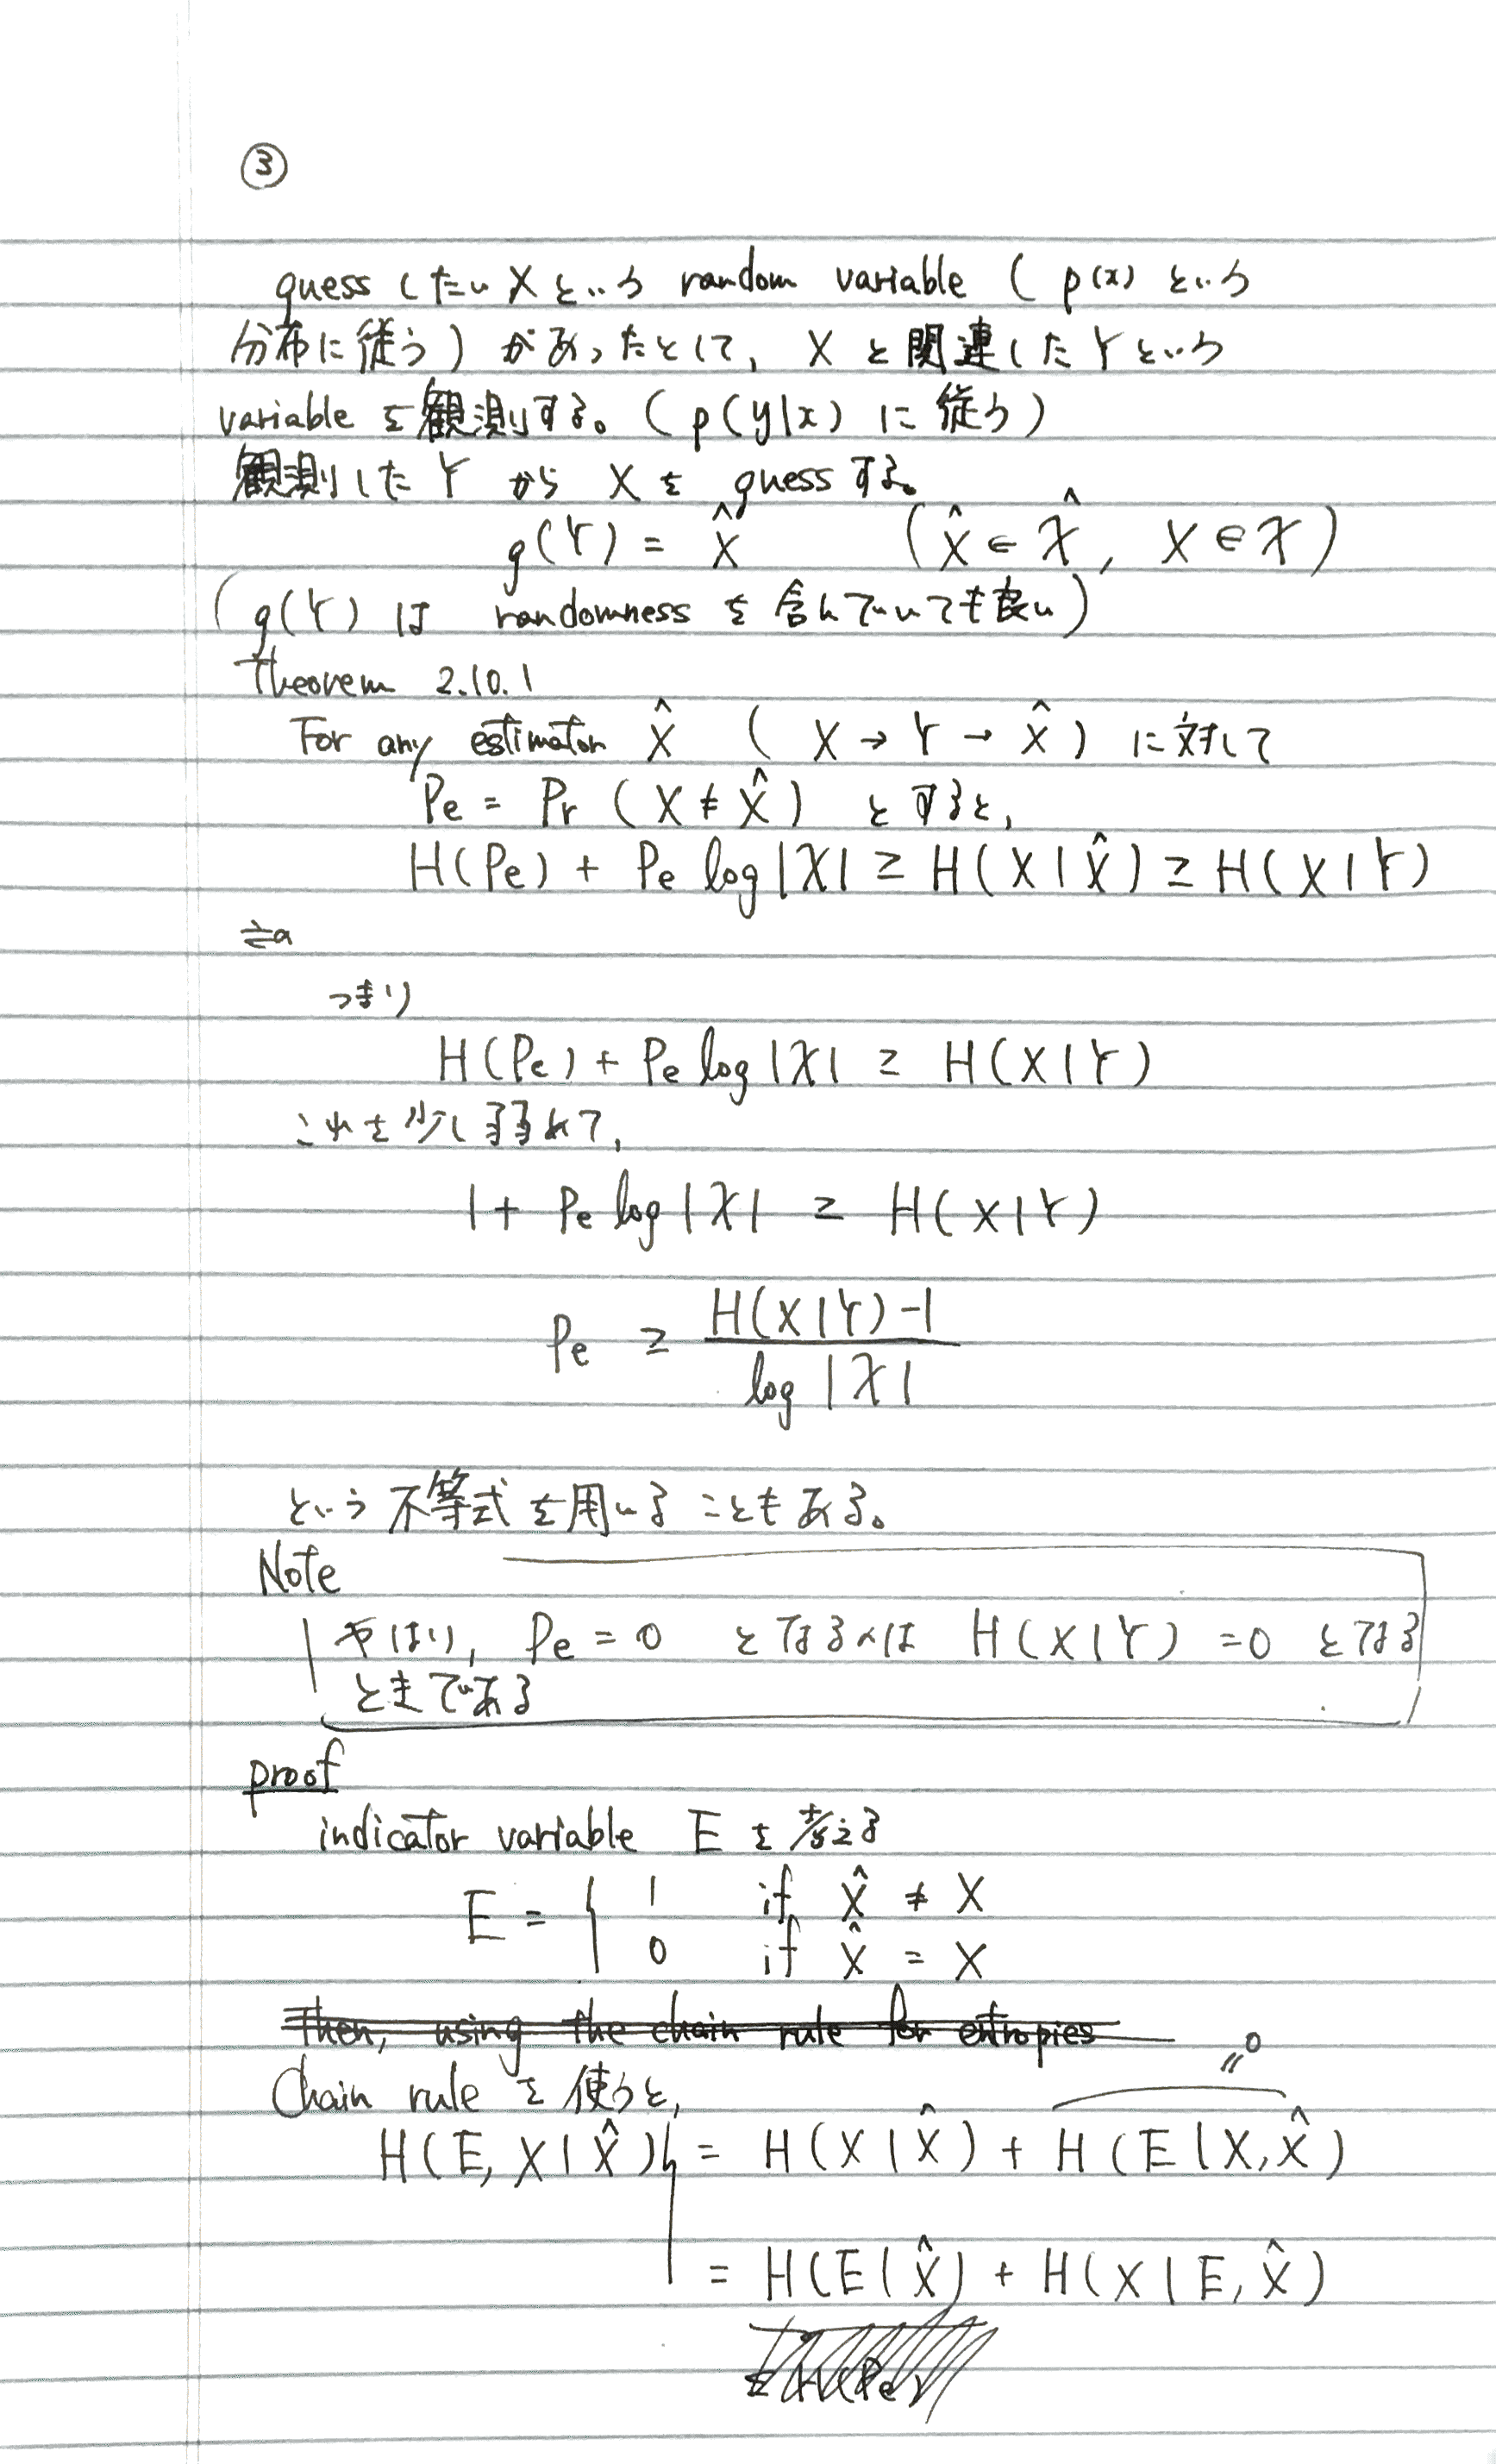 ③
guess したい X という random variable ( p(x) という
分布に従う) があったとして, X と関連した Y という
variable を観測する。( p(y|x) に従う)
観測した Y から X を guess する。
g(Y) = X̂ ( X̂ ∈ 𝒳̂, X ∈ 𝒳 )
( g(Y) は randomness を含んでいても良い)
Theorem 2.10.1
For any estimator X̂ ( X → Y → X̂ ) に対して
Pe = Pr ( X ≠ X̂ ) とすると,
H(Pe) + Pe log |𝒳| ≥ H(X|X̂) ≥ H(X|Y)
つまり
H(Pe) + Pe log |𝒳| ≥ H(X|Y)
これを少し弱めて,
1 + Pe log |𝒳| ≥ H(X|Y)
Pe ≥ H(X|Y) - 1
log |𝒳|
という不等式を用いることもある。
Note
やはり, Pe = 0 となるのは H(X|Y) = 0 となる
ときである
proof
indicator variable E を考える
E = { 1 if X̂ ≠ X
0 if X̂ = X
Then, using the chain rule for entropies
Chain rule を使うと, = 0
H(E, X|X̂) = H(X|X̂) + H(E|X, X̂)
= H(E|X̂) + H(X|E, X̂)